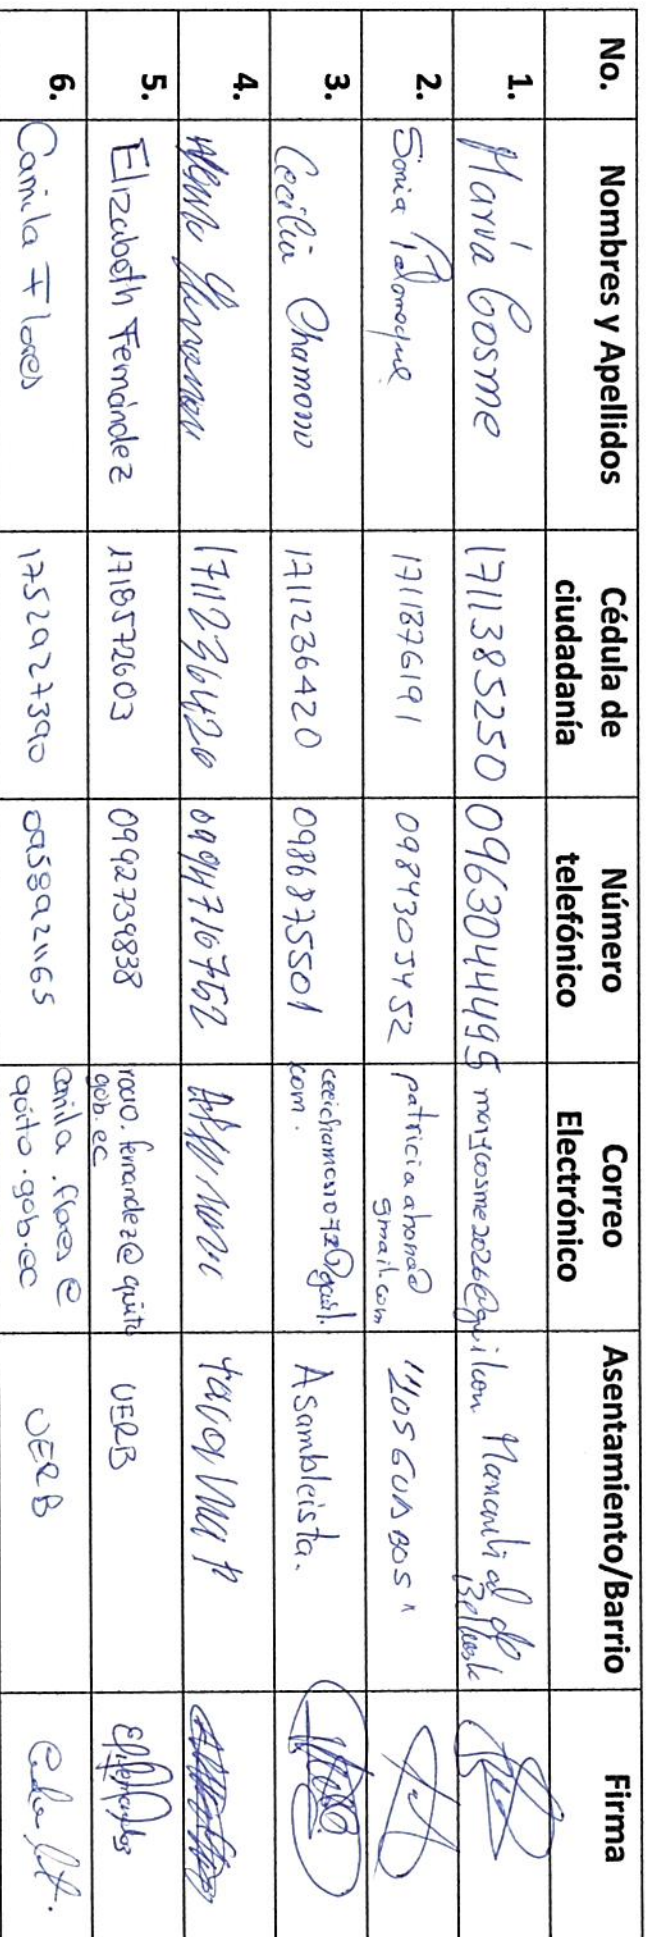 No. Nombres y Apellidos Cédula de ciudadanía Número telefónico Correo Electrónico Asentamiento/Barrio Firma
1. María Cosme 1711385250 0963044495 marycosme2026@gmail.com Manantial de
2. Sonia Palomeque 1711876191 0984305452 patriciaahona@gmail.com "LOS GUABOS"
3. Cecilia Chamorro 1711236420 0986875501 Asambleista.
4. 1711236420
5. Elizabeth Fernández 1718572603 0992739838 rocio.fernandez@quito gob.ec UERB
6. Camila Flores 1752927390 0958921165 camila.flores@ quito.gob.ec UERB